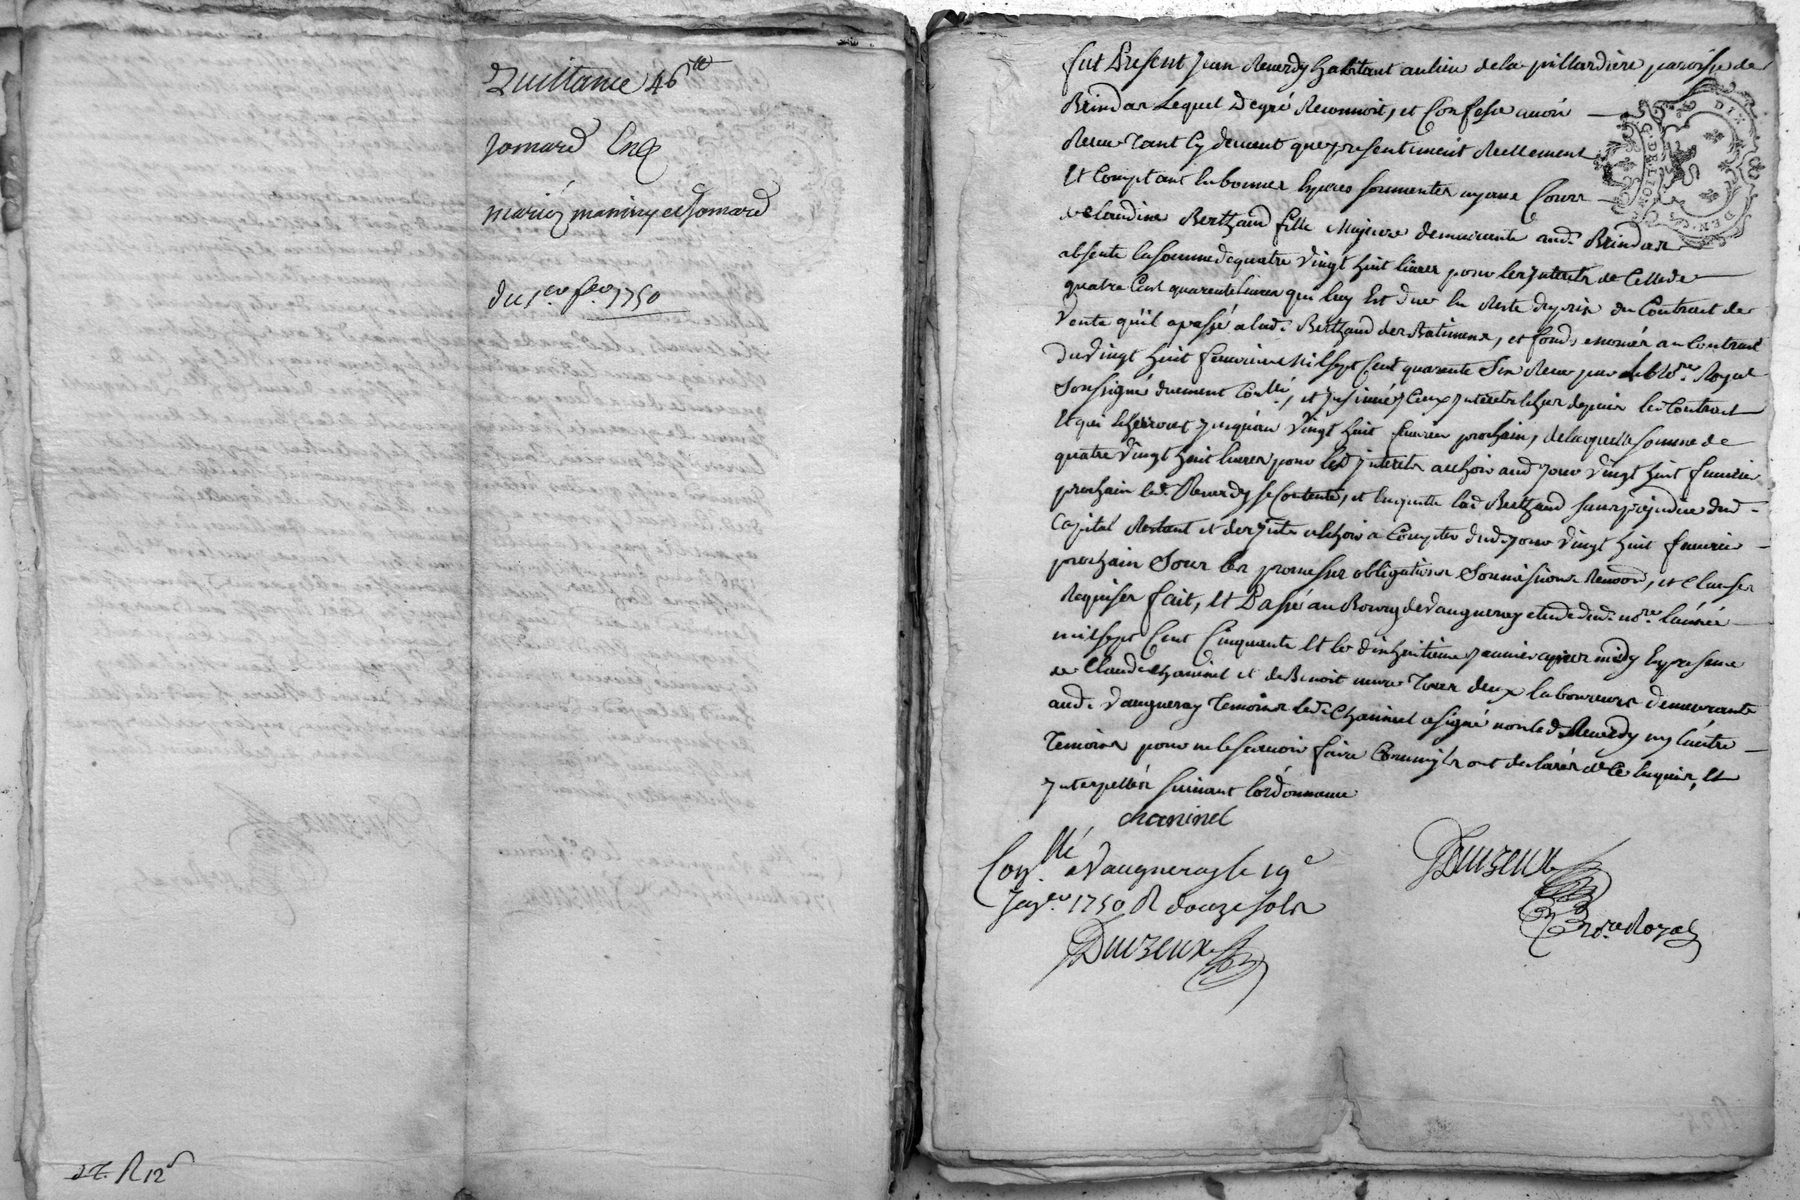 Quittance 46ᵗᵗ
Jomard
mariéz maniny et Jomard
du 1er fev. 1750
d. T. R 12ˢ
fut Present Jean Reverdy habitant au lieu de la pillardiere paroisse de
Brindas Lequel de gré Reconnoit, et Confesse avoir
Receu tant cy devant que presentement Reellement
Et Comptant en bonnes especes sonnantes ayant Cours
de Claudine Berthaud fille Majeure demeurante aud. Brindas
absente la somme de quatre vingt huit livres pour les Interets de Celle de
quatre Cent quarente livres qui luy Est due du Reste du prix du Contract de
Vente qu'il a passé a lad. Berthaud des Batimens, et fonds enoncés au Contract
du vingt huit fevrier mil sept Cent quarante Six Receu par le No.re Royal
Soussigné duement Con.llé, et Insinué, Iceux Interets Echus depuis led Contract
Et qui Echerront jusqu'au vingt huit fevrier prochain, de laquelle somme de
quatre vingt huit livres pour lesd Interets a Echoir aud jour vingt huit fevrier
prochain led. Reverdy se Contente, et En quitte lad Berthaud sans prejudice dud
Capital Restant et des Inter. a Echoir a Compter dud. jour vingt huit fevrier
prochain Sous les promesses obligations Soumissions Renon.on, et Clauses
Requises fait, Et Passé au Bourg de Vaugneray etude dud. no.re L'année
mil sept Cent Cinquante Et le dixhuitieme janvier apres midy En presence
de Claude Chaninel et de Benoit tous deux laboureurs demeurants
aud. Vaugneray Temoins led. Chaninel a signé non led Reverdy ny L'autre
Temoins pour ne le sçavoir faire Comm'ils ont declarés de Ce Enquis, Et
Interpellés suivant L'ordonnance
chaninel
Con.llé a Vaugneray le 19e
Janv.er 1750 R douze sols
Duizeux
Duizeux
No.re Royal